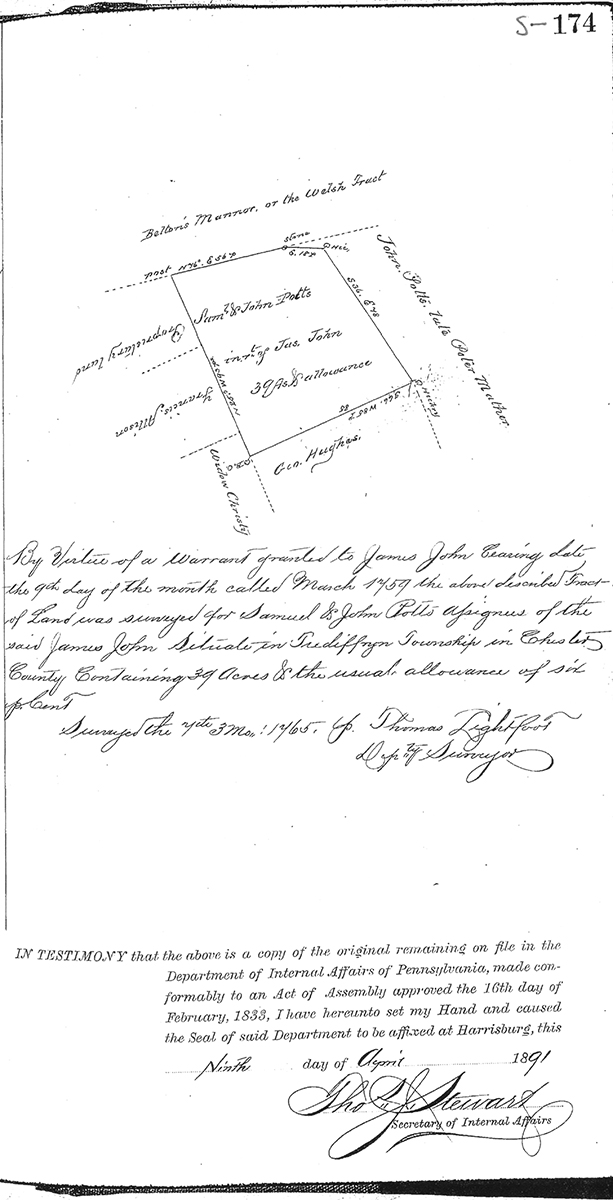 S-174
Belton's Mannor, or the Welsh Tract
stone
post N76° E 56 p
E. 18 p
John Potts, late Peter Mather
S36. E 78
Saml. & John Potts
in rt. of Jas. John
39 As & allowance
Proprietary land
Francis Alison
S66. W 85 p
85
Geo. Hughes.
Widow Christy
By Virtue of a Warrant granted to James John Bearing date
the 9th day of the month called March 1759 the above described Tract
of Land was surveyed for Samuel & John Potts Assignees of the
said James John Situate in Trediffryn Township in Chester
County Containing 39 Acres & the usual allowance of six
p. Cent
Surveyed the 7th 3 Mo: 1765. p. Thomas Lightfoot
Depty Surveyor
IN TESTIMONY that the above is a copy of the original remaining on file in the
Department of Internal Affairs of Pennsylvania, made con-
formably to an Act of Assembly approved the 16th day of
February, 1833, I have hereunto set my Hand and caused
the Seal of said Department to be affixed at Harrisburg, this
Ninth day of April 1891
Tho J. Stewart
Secretary of Internal Affairs